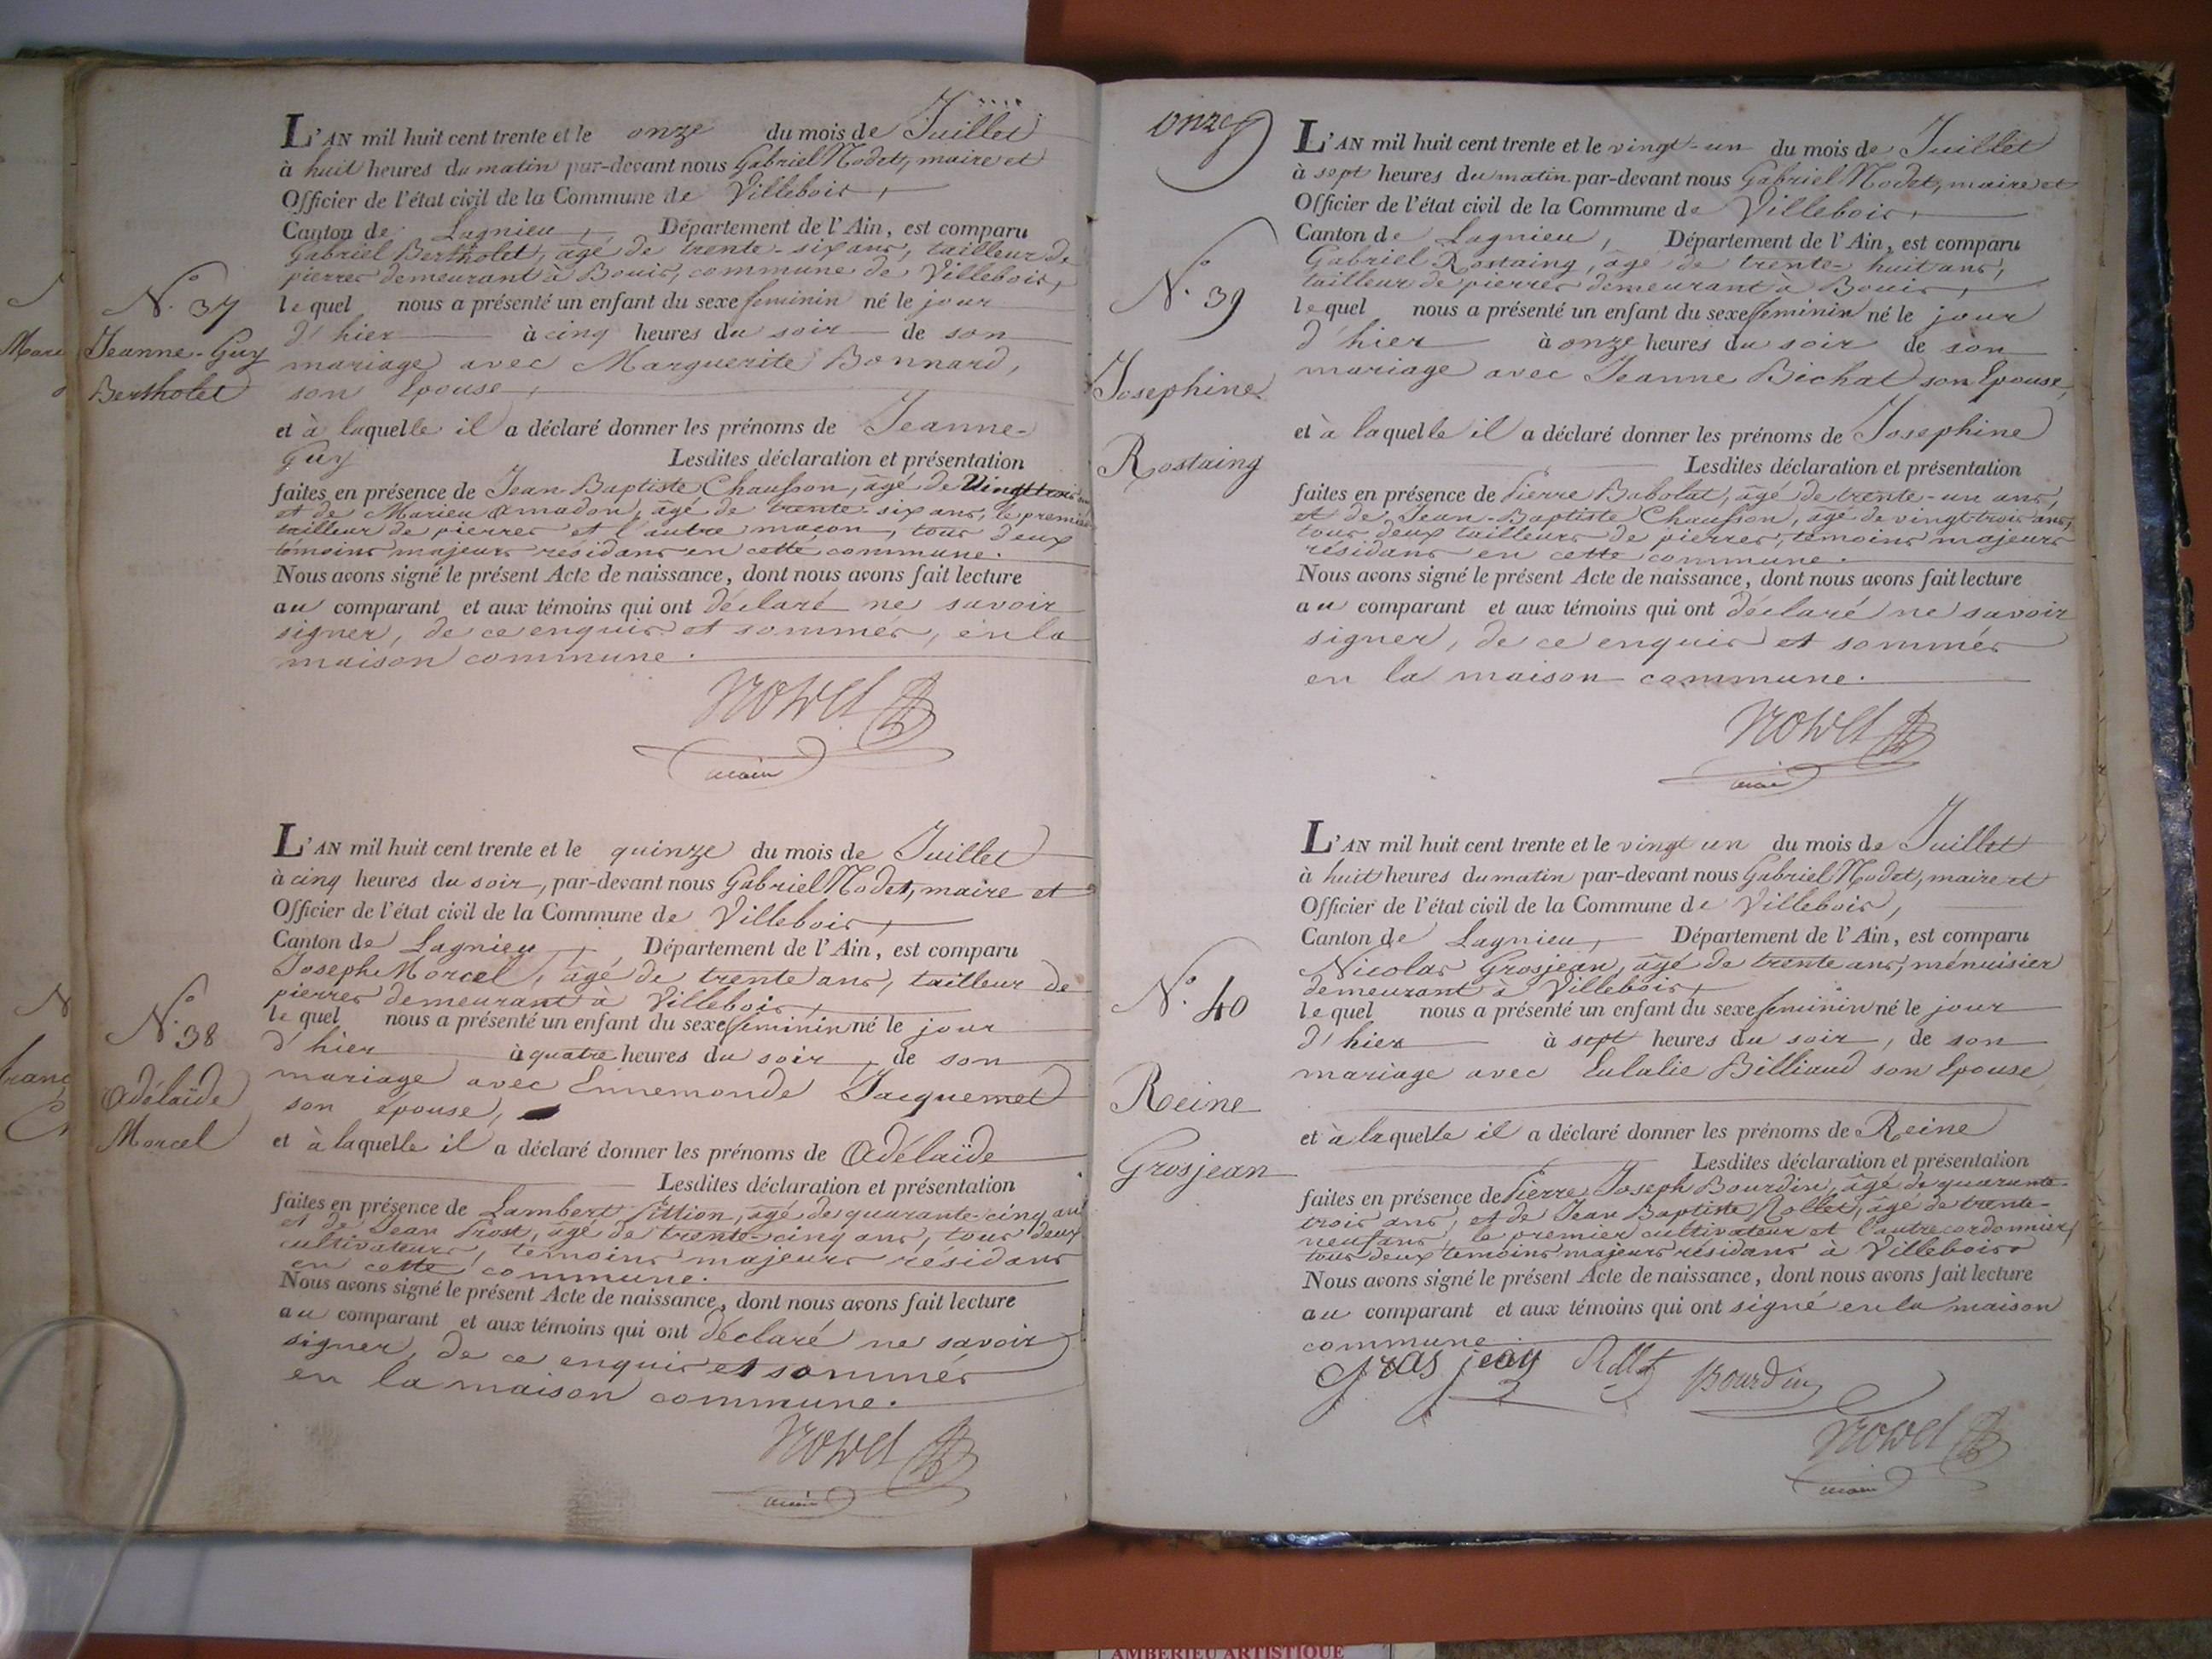 N.º 37
Jeanne-Guy
Bertholet
L'AN mil huit cent trente et le onze du mois de Juillet
à huit heures du matin par-devant nous Gabriel Nodet, maire et
Officier de l'état civil de la Commune de Villebois,
Canton de Lagnieu, Département de l'Ain, est comparu
Gabriel Bertholet, âgé de trente-six ans, tailleur de
pierres demeurant à Bouis, commune de Villebois,
lequel nous a présenté un enfant du sexe feminin né le jour
d'hier à cinq heures du soir de son
mariage avec Marguerite Bonnard,
son Epouse,
et à laquelle il a déclaré donner les prénoms de Jeanne-
Guy Lesdites déclaration et présentation
faites en présence de Jean-Baptiste Chausson, âgé de Vingt trois ans
et de Marieu Amadon, âgé de trente-six ans, le premier
tailleur de pierres et l'autre maçon, tous deux
témoins majeurs résidans en cette commune.
Nous avons signé le présent Acte de naissance, dont nous avons fait lecture
au comparant et aux témoins qui ont déclaré ne savoir
signer, de ce enquis et sommés, en la
maison commune.
Nodet
maire
N.º 38
Adélaïde
Morcel
L'AN mil huit cent trente et le quinze du mois de Juillet
à cinq heures du soir, par-devant nous Gabriel Nodet, maire et
Officier de l'état civil de la Commune de Villebois,
Canton de Lagnieu, Département de l'Ain, est comparu
Joseph Morcel, âgé de trente ans, tailleur de
pierres demeurant à Villebois,
lequel nous a présenté un enfant du sexe feminin né le jour
d'hier à quatre heures du soir, de son
mariage avec Ennemonde Jacquemet
son épouse,
et à laquelle il a déclaré donner les prénoms de Adélaïde
Lesdites déclaration et présentation
faites en présence de Lambert Sittion, âgé de quarante-cinq ans
et de Jean Prost, âgé de trente-cinq ans, tous deux
cultivateurs, temoins majeurs résidans
en cette commune.
Nous avons signé le présent Acte de naissance, dont nous avons fait lecture
au comparant et aux témoins qui ont déclaré ne savoir
signer, de ce enquis et sommés
en la maison commune.
Nodet
maire
onze
N.º 39
Josephine
Rostaing
L'AN mil huit cent trente et le vingt-un du mois de Juillet
à sept heures du matin par-devant nous Gabriel Nodet, maire et
Officier de l'état civil de la Commune de Villebois,
Canton de Lagnieu, Département de l'Ain, est comparu
Gabriel Rostaing, âgé de trente-huit ans,
tailleur de pierres demeurant à Bouis,
lequel nous a présenté un enfant du sexe feminin né le jour
d'hier à onze heures du soir de son
mariage avec Jeanne Bichat son Epouse,
et à laquelle il a déclaré donner les prénoms de Josephine
Lesdites déclaration et présentation
faites en présence de Pierre Babolat, âgé de trente-un ans,
et de Jean-Baptiste Chausson, âgé de vingt-trois ans,
tous deux tailleurs de pierres, témoins majeurs
résidans en cette commune.
Nous avons signé le présent Acte de naissance, dont nous avons fait lecture
au comparant et aux témoins qui ont déclaré ne savoir
signer, de ce enquis et sommés
en la maison commune.
Nodet
maire
N.º 40
Reine
Grosjean
L'AN mil huit cent trente et le vingt un du mois de Juillet
à huit heures du matin par-devant nous Gabriel Nodet, maire et
Officier de l'état civil de la Commune de Villebois,
Canton de Lagnieu, Département de l'Ain, est comparu
Nicolas Grosjean, âgé de trente ans, ménuisier
demeurant à Villebois,
lequel nous a présenté un enfant du sexe feminin né le jour
d'hier à sept heures du soir, de son
mariage avec Eulalie Billiaud son Epouse
et à laquelle il a déclaré donner les prénoms de Reine
Lesdites déclaration et présentation
faites en présence de Pierre Joseph Bourdin, âgé de quarante-
trois ans, et de Jean Baptiste Rollet, âgé de trente-
neuf ans, le premier cultivateur et l'autre cordonnier,
tous deux temoins majeurs résidans à Villebois
Nous avons signé le présent Acte de naissance, dont nous avons fait lecture
au comparant et aux témoins qui ont signé en la maison
commune.
gros jean Rollet Bourdin
Nodet
maire
AMBERIEU ARTISTIQUE